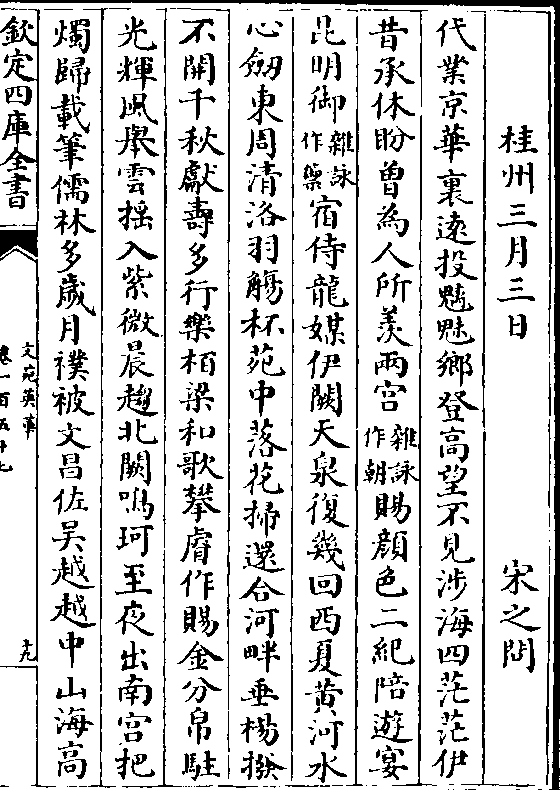 桂州三月三日 宋之問
代業京華裏遠投魑魅鄉登高望不見涉海四茫茫伊
昔承休盼曾為人所羡兩宮雜詠作朝賜顔色二紀陪遊宴
昆明御雜詠作籞宿侍龍媒伊闕天泉復幾回西夏黄河水
心劒東周清洛羽觴杯苑中落花掃還合河畔垂楊撥
不開千秋獻壽多行樂栢梁和歌攀睿作賜金分帛駐
光輝風舉雲揺入紫微晨趨北闕鳴珂至夜出南宮把
燭歸載筆儒林多歲月襆被文昌佐吴越越中山海高
欽定四庫全書
文苑英華
卷一百五十七